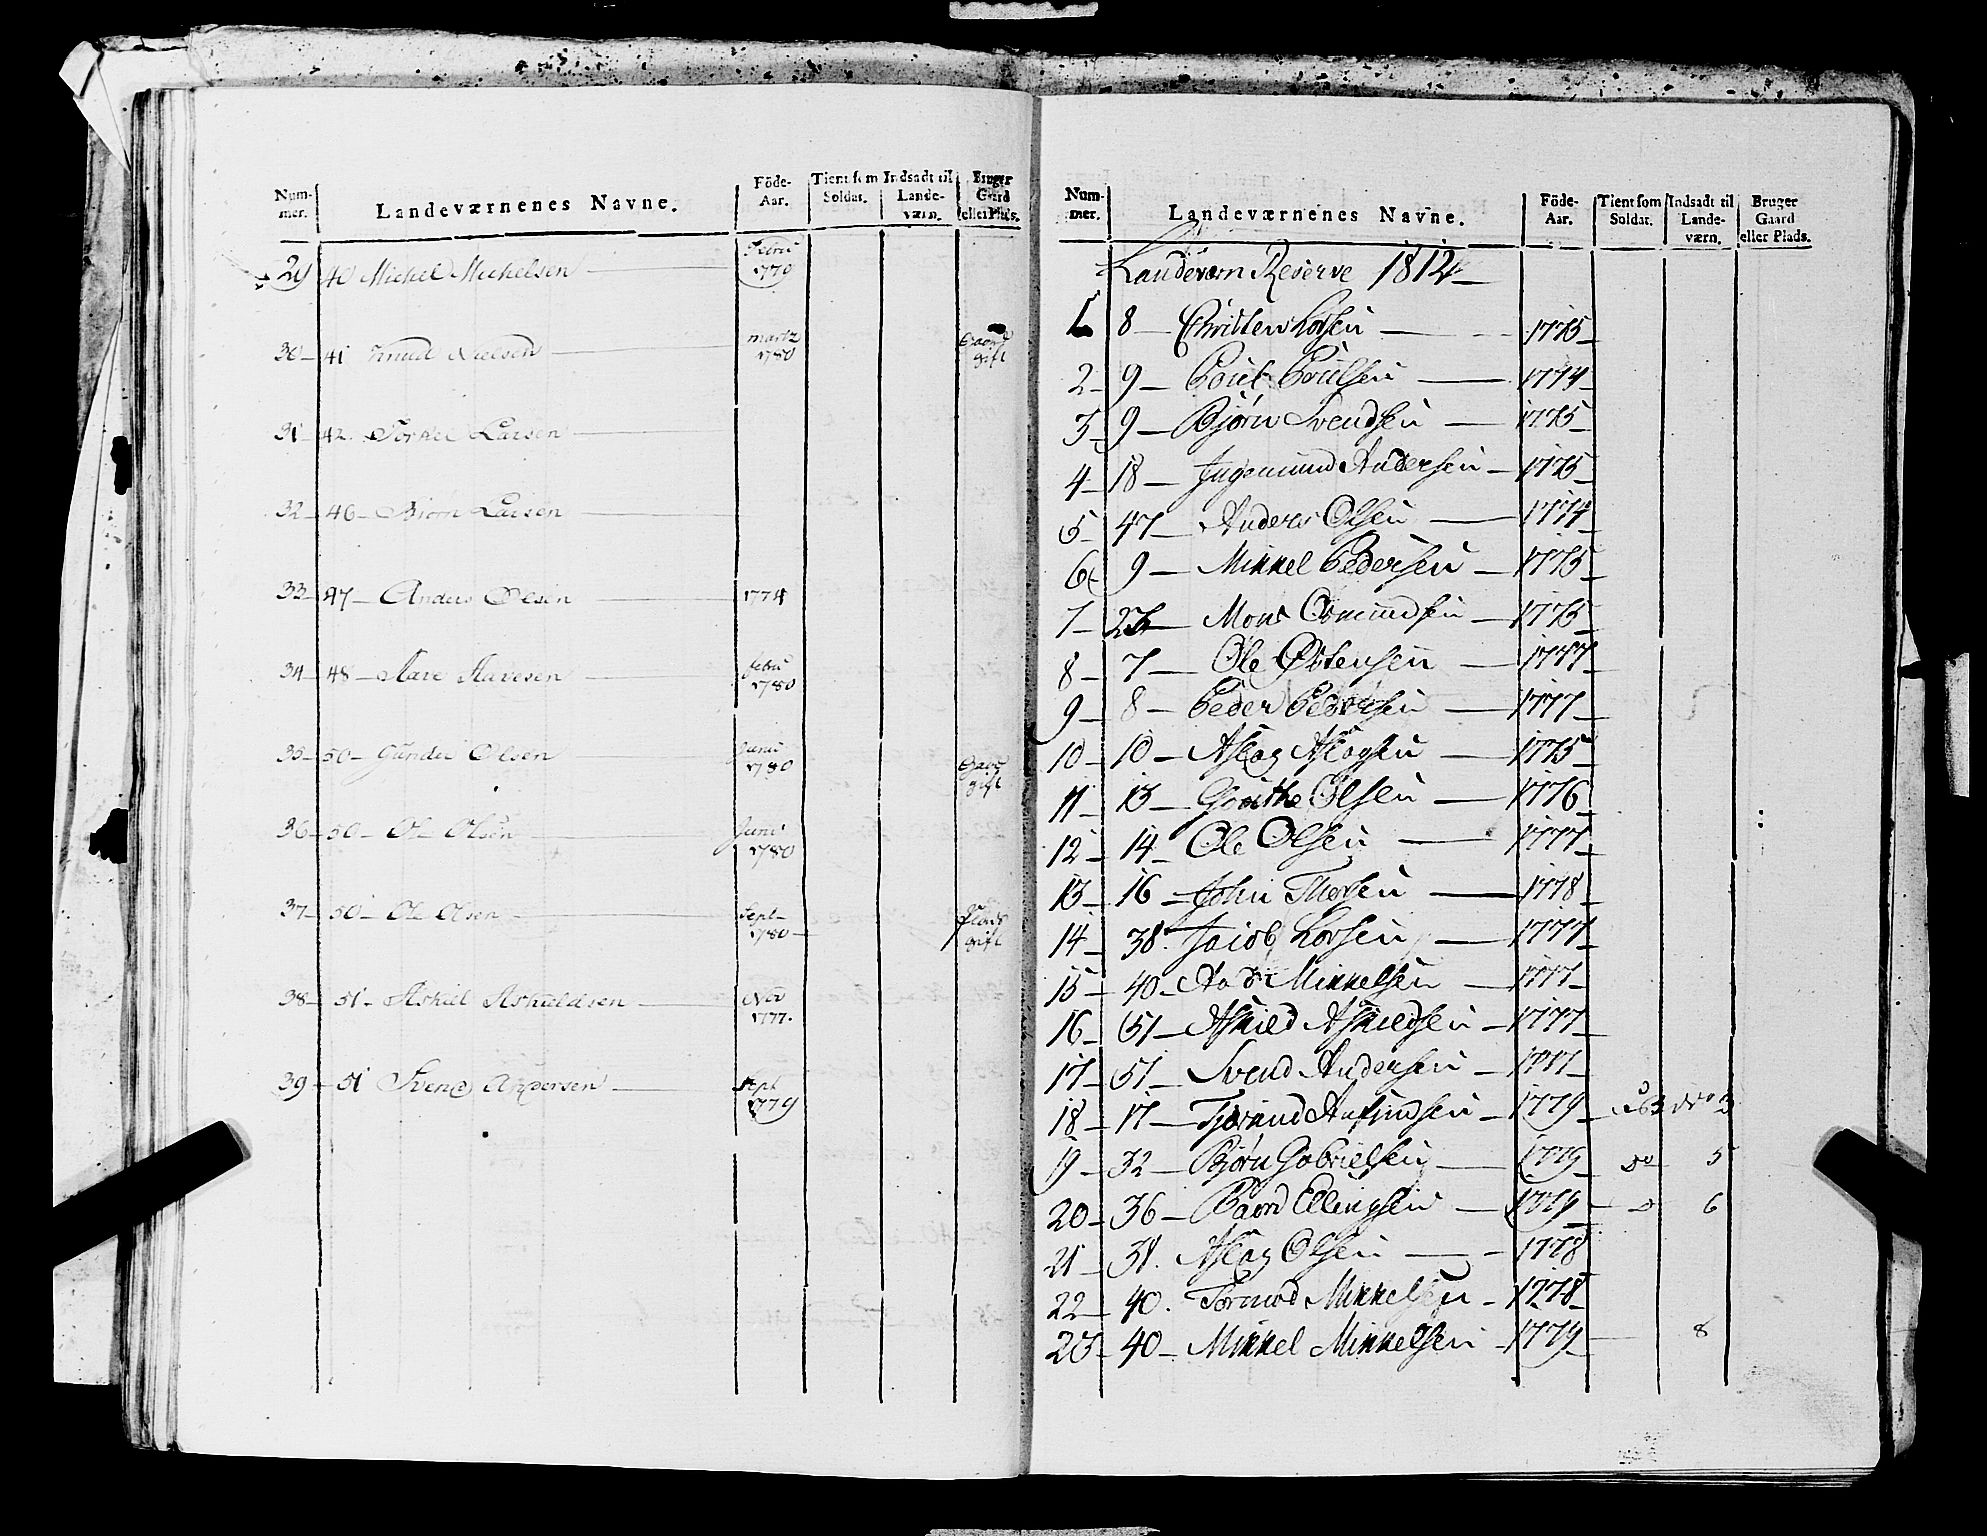 Num-mer. Landeværnenes Navne. Föde-Aar. Tient som Soldat. Indsadt til Lande-værn. Bruger Gaard eller Plads.
29 40 Michel Michelsen Febru 1779
30 41 Knud Nielsen martz 1780 Gaard gift
31 42. Torkel Larsen
32 46 Biørn Larsen
33 47 Anders Olsen 1774
34 48 Aave Aavesen febru 1780
35 50 Gunder Olsen Juni 1780 Gaard gift
36 50 Ole Olsen Juni 1780
37 50 Ole Olsen Sept 1780 Plads gift
38 51 Askiel Askieldsen Nov 1777.
39 51 Svend Andersen Sept 1779
Num-mer. Landeværnenes Navne. Föde-Aar. Tient som Soldat. Indsadt til Lande-værn. Bruger Gaard eller Plads.
Landeværn Reserve 1812
1 8 Christen Larsen 1775
2 9 Poul Poulsen 1774
3 9 Bjørn Svendsen 1775
4 18 Ingemund Andersen 1775
5 47 Anders Olsen 1774
6 9 Mikkel Pedersen 1775
7 Mons Osmundsen 1775
8 7 Ole Østensen 1777
9 8 Peder Pedersen 1777
10 10 Aslag Aslagsen 1775
11 13 Olsen 1776
12 14 Ole Olsen 1777
13 16 John Thorsen 1778
14 38. Jacob Larsen 1777
15 40 Mikkelsen 1777
16 51 Askield Askieldsen 1777
17 51 Svend Andersen 1777
18 17 1779
19 32 Bjørn Gabrielsen 1779 do 5
20 36 Baard Ellingsen 1779 6
21 38. Aslag Olsen 1778
22 40. Tormod Mikkelsen 1778
23 40 Mikkel Mikkelsen 1779 8